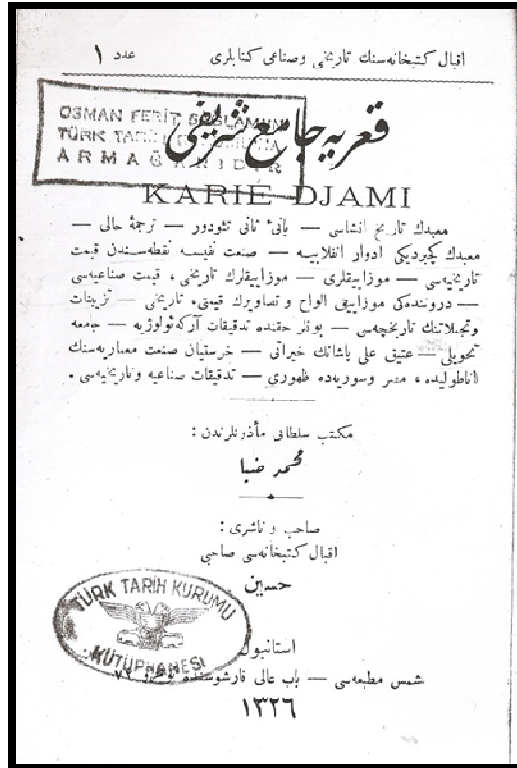 اقبال كتبخانه‌سنك تاريخى و صناعى كتابلرى
عدد ١
OSMAN FERİT SAĞLAMIN
TÜRK TARİH KURUMUNA
ARMAĞANIDIR
قعريه جامع شريفى
KARIE DJAMI
معبدك تاريخ انشاسى — بانئ ثانى تئودور — ترجمۀ حالى —
معبدك كچيرديكى ادوار انقلابيه — صنعت نفيسه نقطه‌سندن قيمت
تاريخيه‌سى — موزاييقلرى — موزاييقلرك تاريخى ، قيمت صناعيه‌سى
— دروننده‌كى موزاييقى الواح و تصاويرك قيمتى، تاريخى — تزيينات
و تجليلاتنك تاريخچه‌سى — بونلر حقنده تدقيقات آركه‌ئولوژيه — جامعه
تحويلى — عتيق على پاشانك خيراتى — خرستيان صنعت معماريه‌سنك
اناطوليده، مصر وسوريه‌ده ظهورى — تدقيقات صناعيه و تاريخيه‌سى .
مكتب سلطانى مأذونلرندن :
محمد ضيا
صاحب و ناشرى :
اقبال كتبخانه‌سى صاحبى
حسين
TÜRK TARİH KURUMU
KÜTÜPHANESİ
استانبول
شمس مطبعه‌سى — باب عالى قارشوسنده نومرو
١٣٢٦